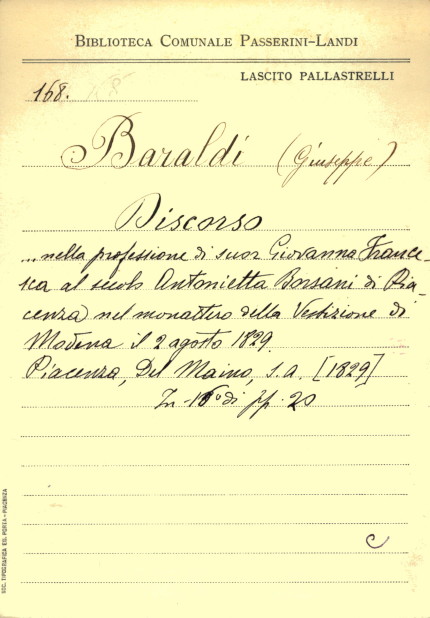 BIBLIOTECA COMUNALE PASSERINI-LANDI
LASCITO PALLASTRELLI
168.
Baraldi (Giuseppe)
Discorso
...nella professione di suor Giovanna France-
sca al secolo Antonietta Borsani di Pia-
cenza nel monastero della Vestizione di
Modena il 2 agosto 1829.
Piacenza, Del Maino, s.a. [1829]
In-16° di pp. 20
C
SOC. TIPOGRAFICA ED. PORTA - PIACENZA